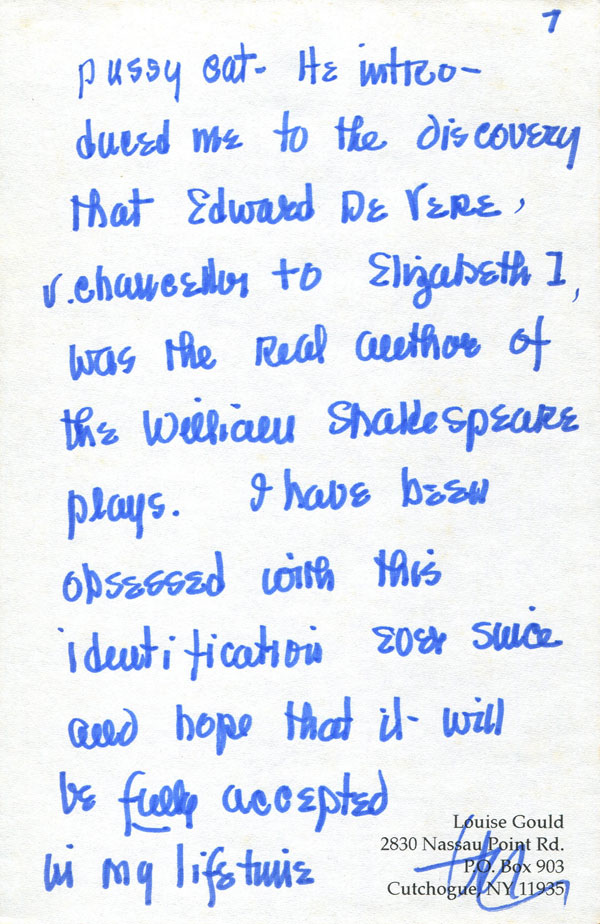 7
pussy cat- He intro-
duced me to the discovery
that Edward De Vere,
v.chancellor to Elizabeth I,
was the real author of
the William Shakespeare
plays. I have been
obsessed with this
identification ever since
and hope that it will
be fully accepted
in my lifetime
Louise Gould
2830 Nassau Point Rd.
P.O. Box 903
Cutchogue, NY 11935